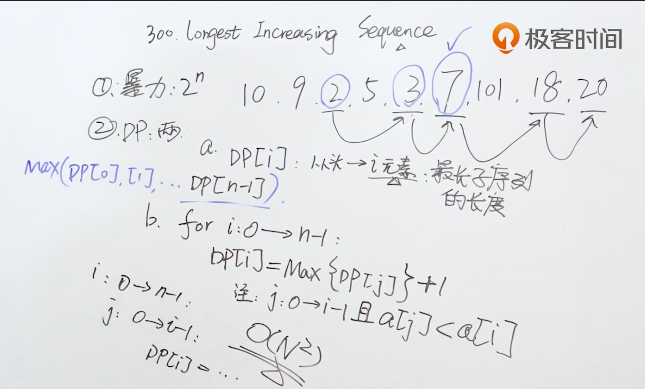 300. Longest Increasing Sequence
极客时间
①.暴力: 2ⁿ
10. 9. 2. 5. 3. 7. 101. 18. 20
②.DP: 两
a. DP[i]: 从头→i元素: 最长子序列的长度
Max(DP[0],[1],... DP[n-1]).
b. for i: 0→n-1:
DP[i]=Max{DP[j]}+1
注: j: 0→i-1 且 a[j]<a[i]
i: 0→n-1:
j: 0→i-1:
DP[i]=...
O(N²)